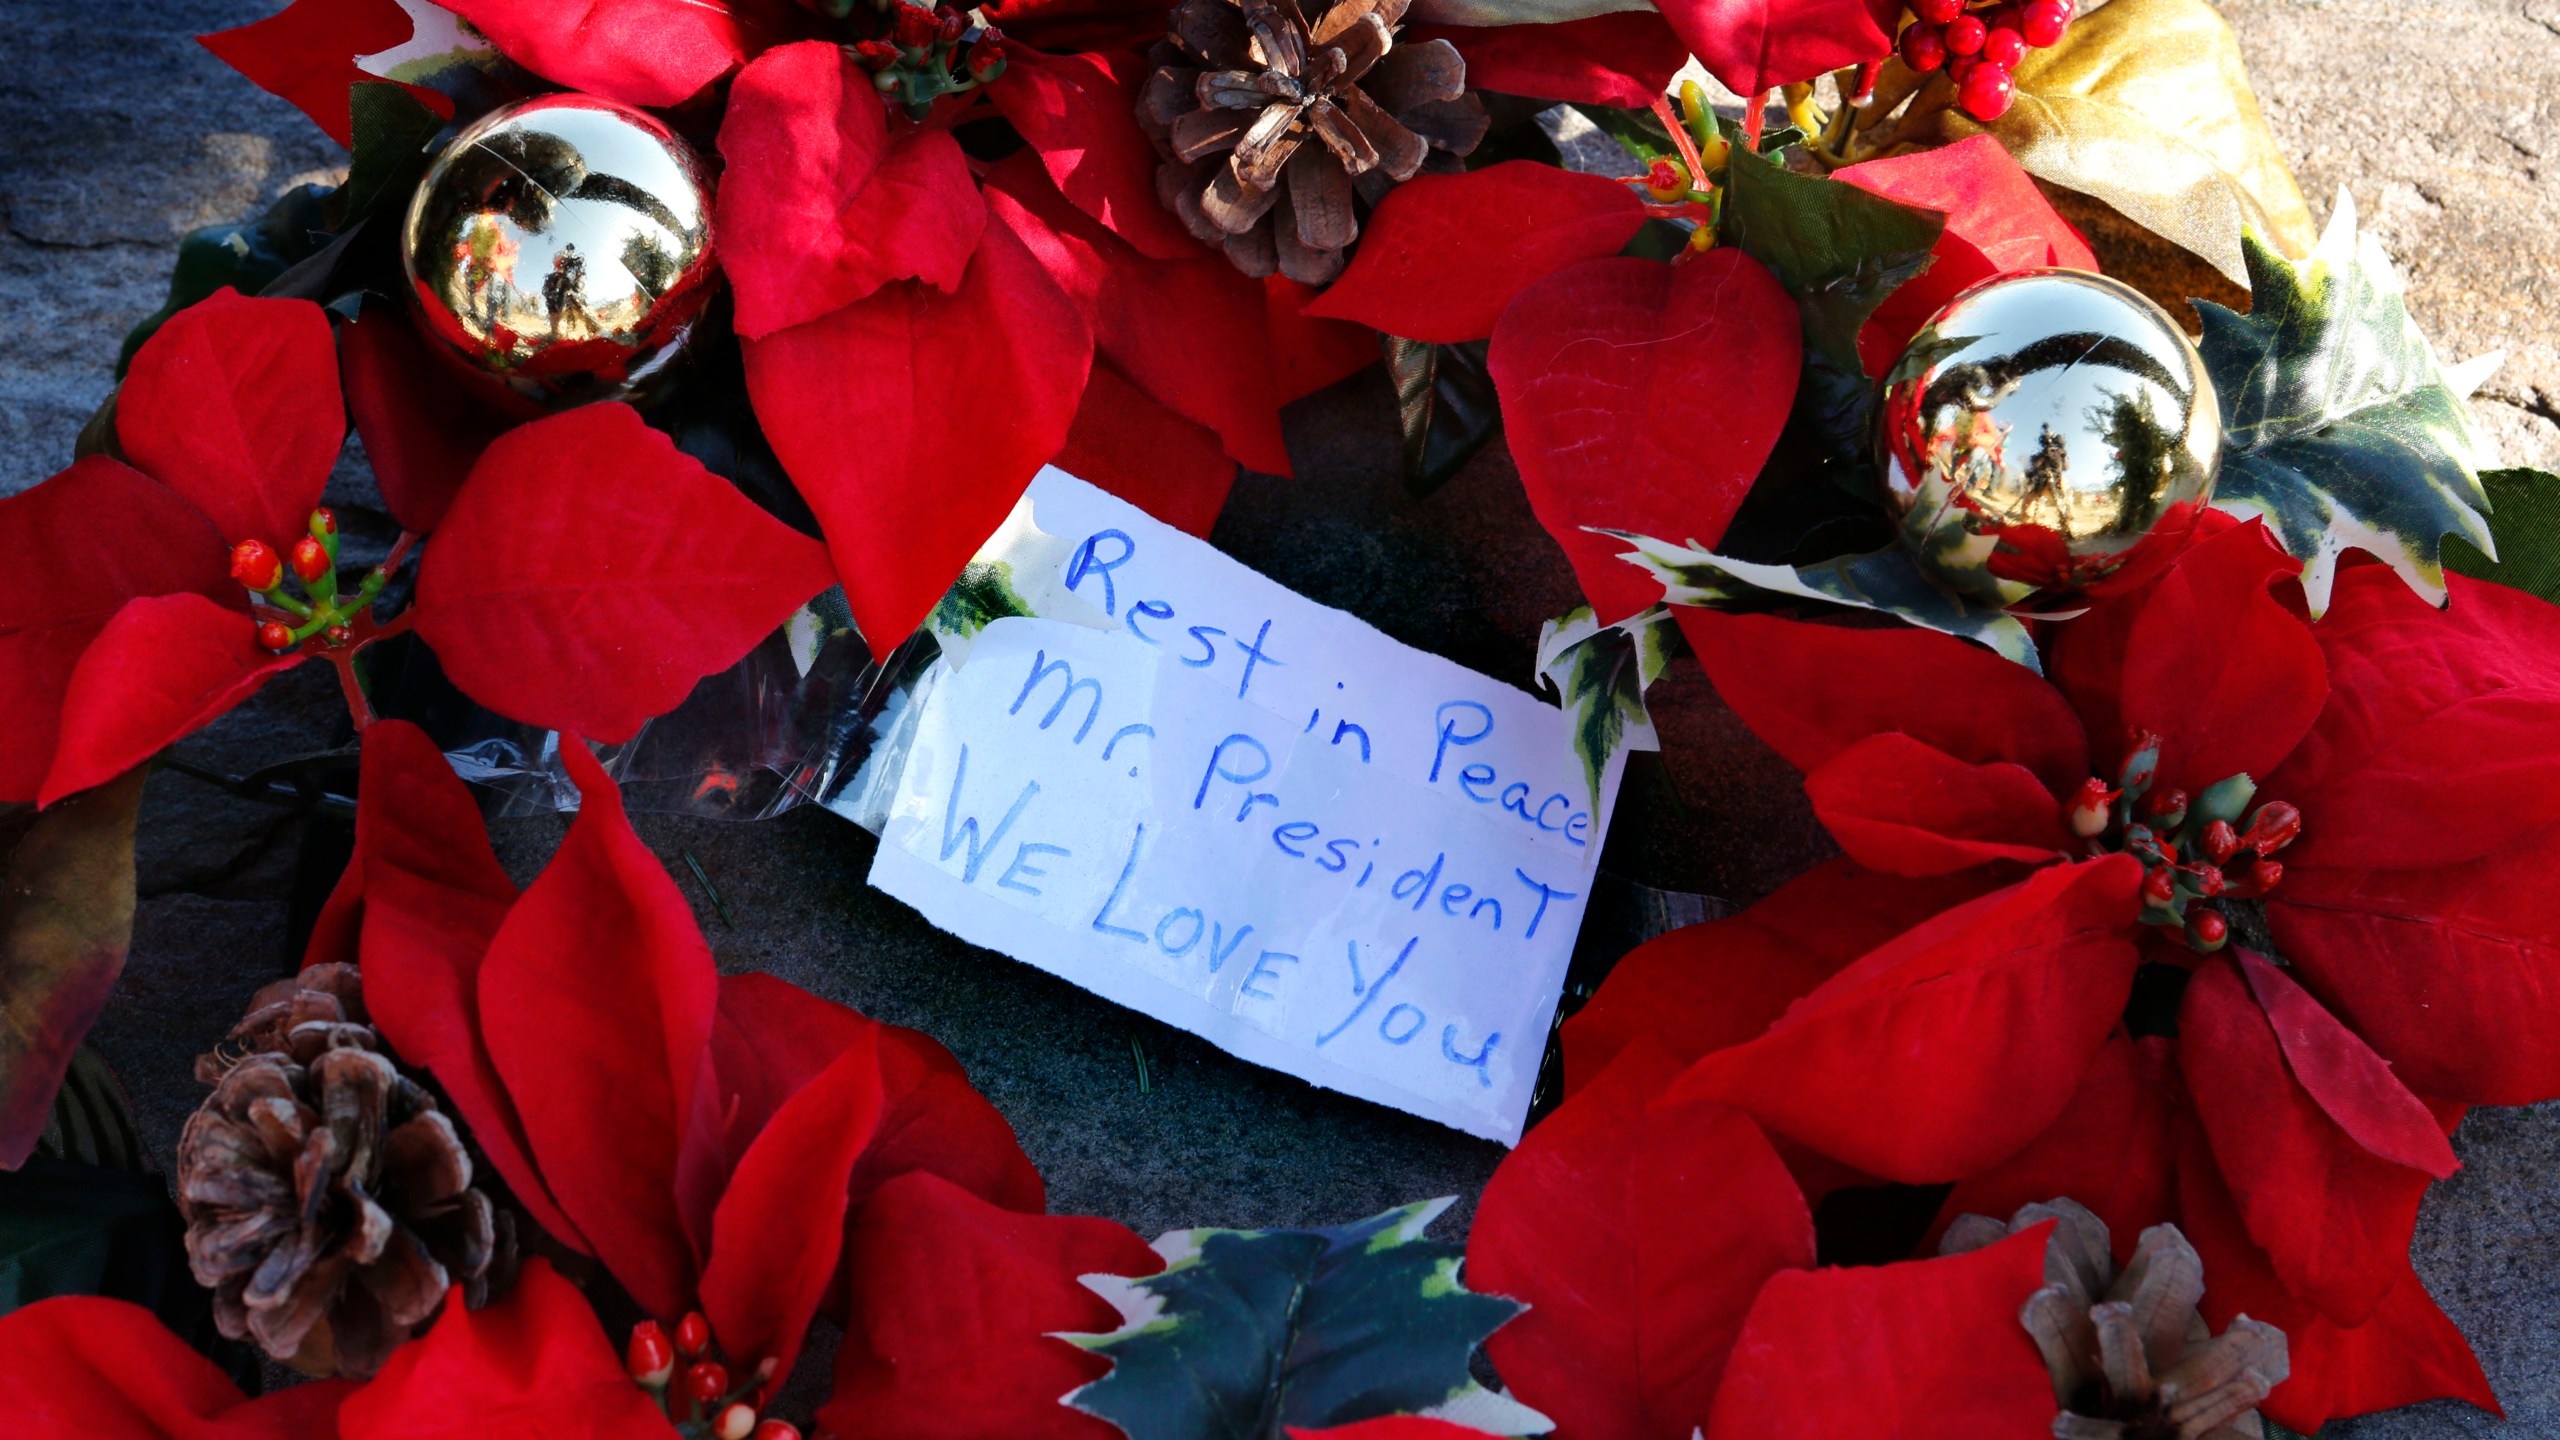 Rest in Peace
Mr. PresidenT
WE LOVE You